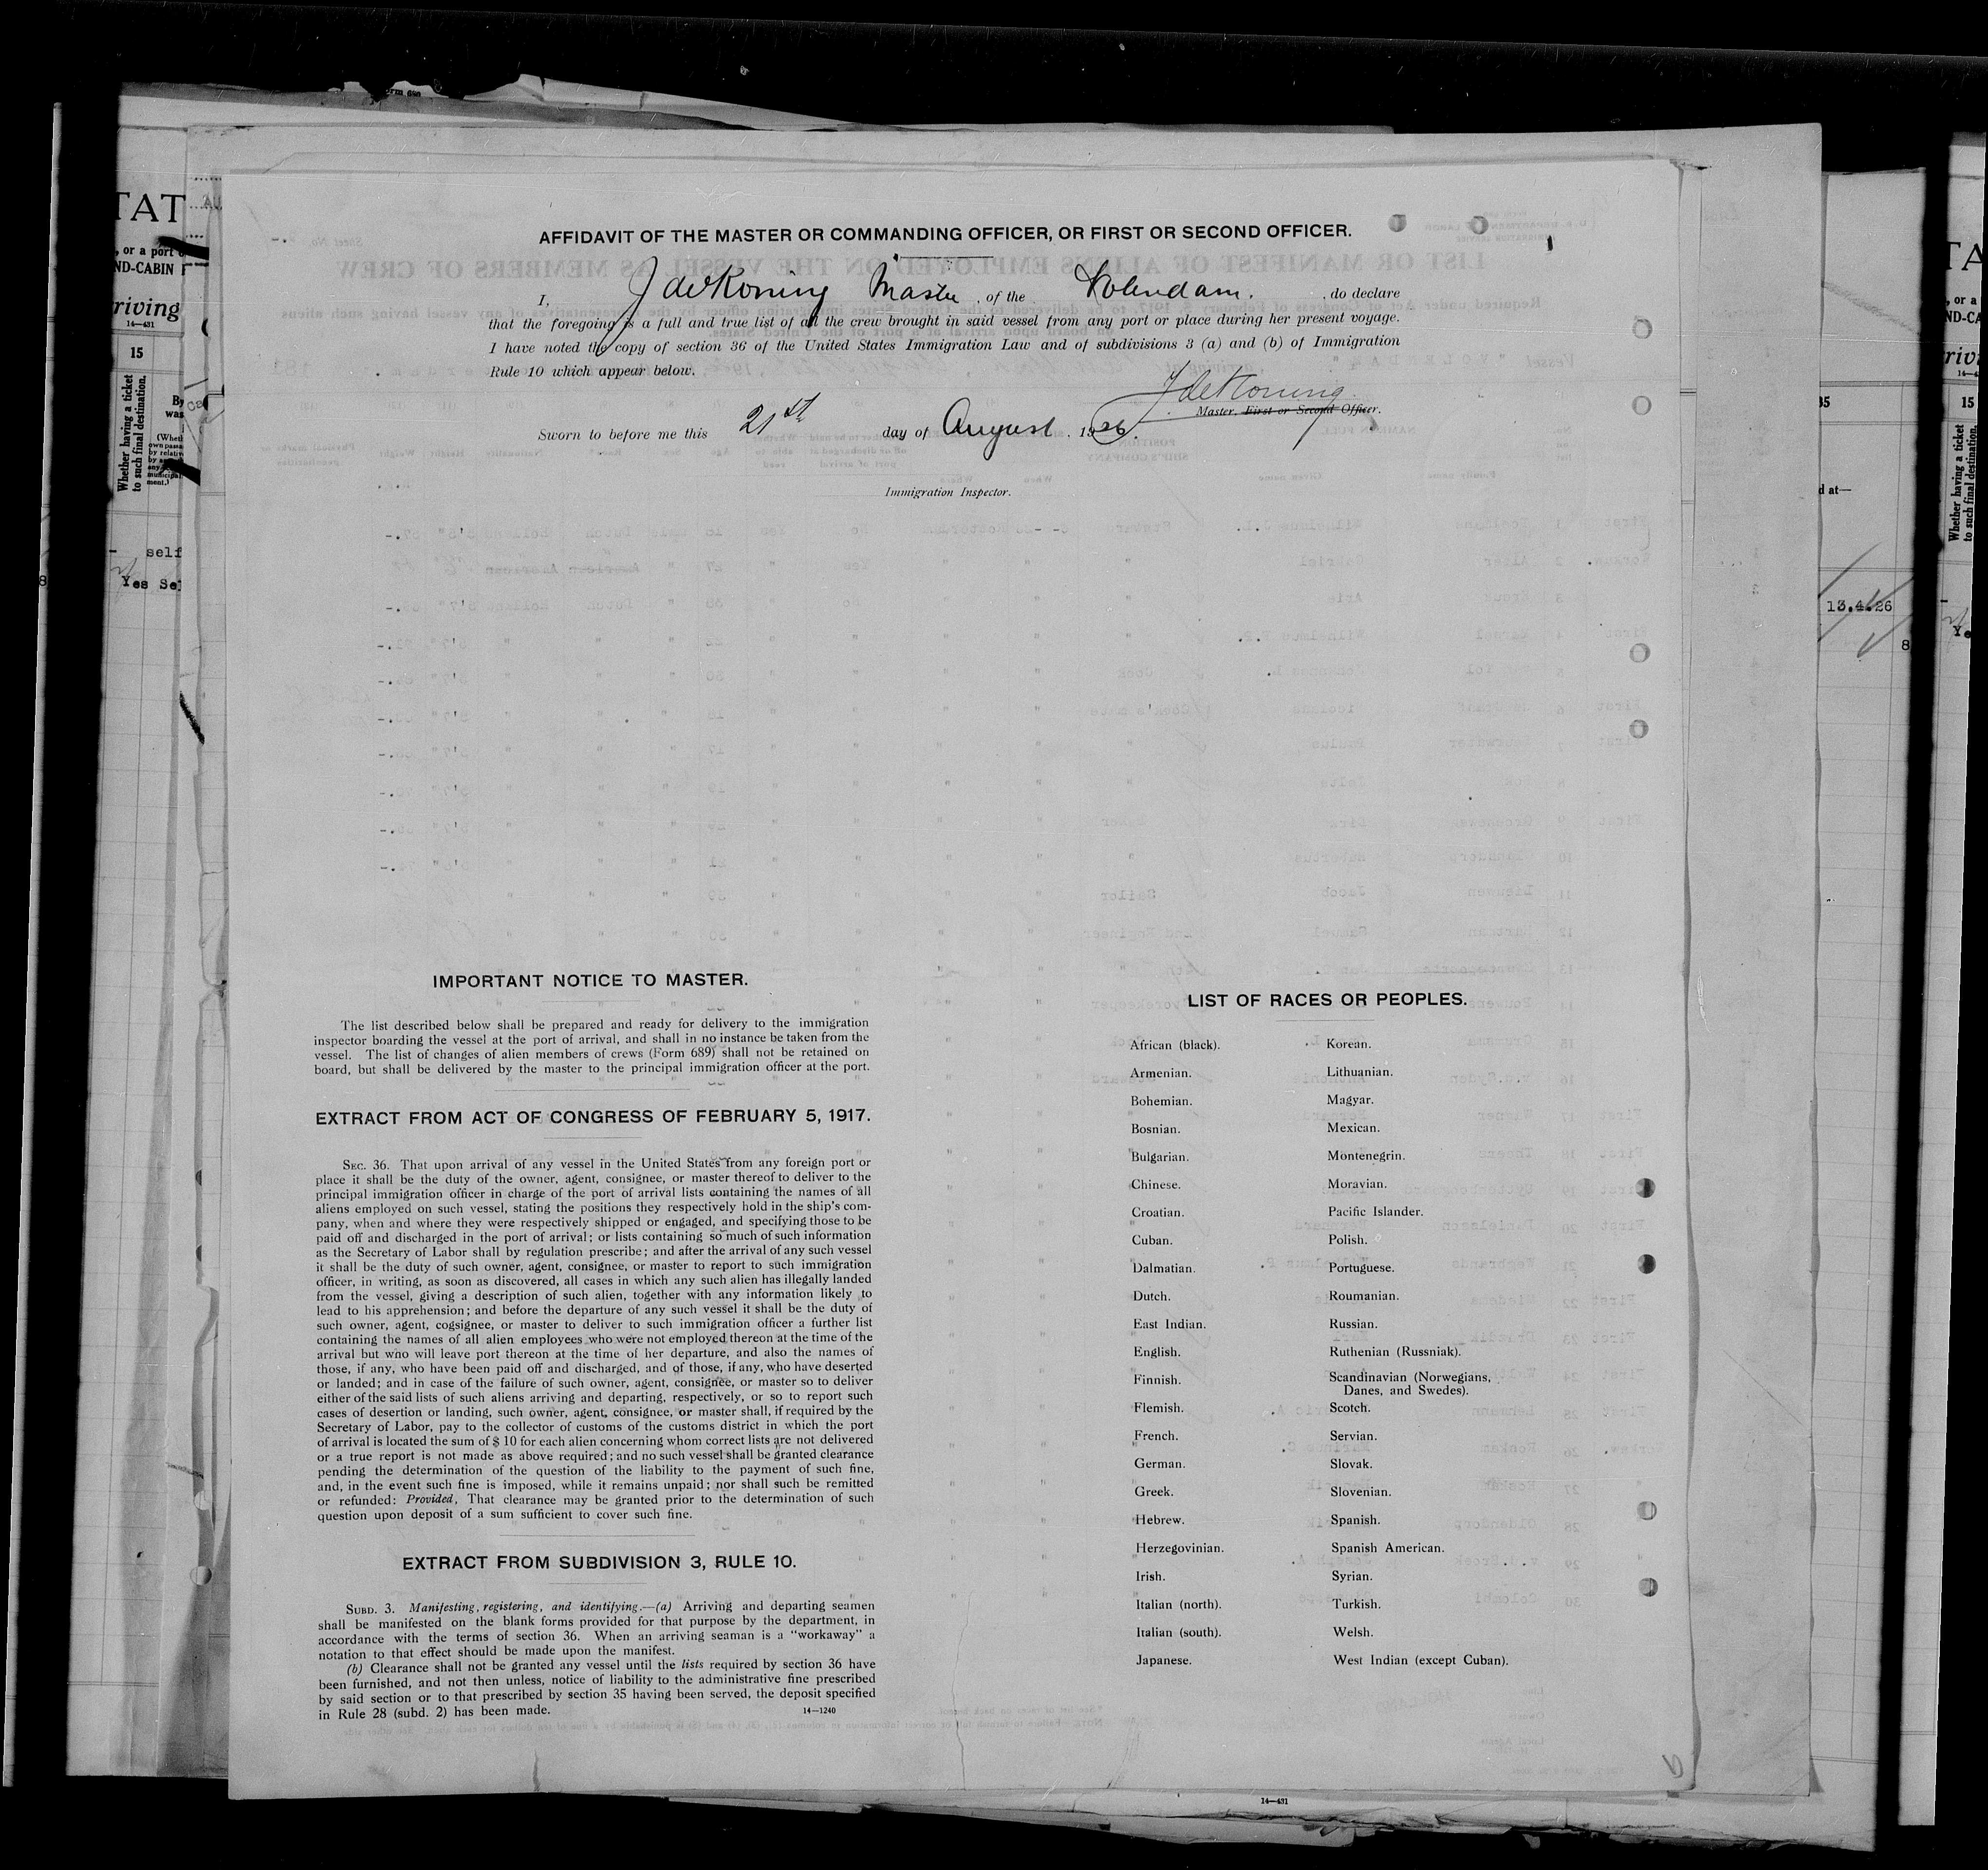 AFFIDAVIT OF THE MASTER OR COMMANDING OFFICER, OR FIRST OR SECOND OFFICER.
I, J de Koning Master, of the Volendam., do declare
that the foregoing is a full and true list of all the crew brought in said vessel from any port or place during her present voyage.
I have noted the copy of section 36 of the United States Immigration Law and of subdivisions 3 (a) and (b) of Immigration
Rule 10 which appear below.
J de Koning.
Master, First or Second Officer.
Sworn to before me this 21st day of August, 1926.
Immigration Inspector.
IMPORTANT NOTICE TO MASTER.
The list described below shall be prepared and ready for delivery to the immigration
inspector boarding the vessel at the port of arrival, and shall in no instance be taken from the
vessel. The list of changes of alien members of crews (Form 689) shall not be retained on
board, but shall be delivered by the master to the principal immigration officer at the port.
EXTRACT FROM ACT OF CONGRESS OF FEBRUARY 5, 1917.
SEC. 36. That upon arrival of any vessel in the United States from any foreign port or
place it shall be the duty of the owner, agent, consignee, or master thereof to deliver to the
principal immigration officer in charge of the port of arrival lists containing the names of all
aliens employed on such vessel, stating the positions they respectively hold in the ship's com-
pany, when and where they were respectively shipped or engaged, and specifying those to be
paid off and discharged in the port of arrival; or lists containing so much of such information
as the Secretary of Labor shall by regulation prescribe; and after the arrival of any such vessel
it shall be the duty of such owner, agent, consignee, or master to report to such immigration
officer, in writing, as soon as discovered, all cases in which any such alien has illegally landed
from the vessel, giving a description of such alien, together with any information likely to
lead to his apprehension; and before the departure of any such vessel it shall be the duty of
such owner, agent, cogsignee, or master to deliver to such immigration officer a further list
containing the names of all alien employees who were not employed thereon at the time of the
arrival but who will leave port thereon at the time of her departure, and also the names of
those, if any, who have been paid off and discharged, and of those, if any, who have deserted
or landed; and in case of the failure of such owner, agent, consignee, or master so to deliver
either of the said lists of such aliens arriving and departing, respectively, or so to report such
cases of desertion or landing, such owner, agent, consignee, or master shall, if required by the
Secretary of Labor, pay to the collector of customs of the customs district in which the port
of arrival is located the sum of $ 10 for each alien concerning whom correct lists are not delivered
or a true report is not made as above required; and no such vessel shall be granted clearance
pending the determination of the question of the liability to the payment of such fine,
and, in the event such fine is imposed, while it remains unpaid; nor shall such be remitted
or refunded: Provided, That clearance may be granted prior to the determination of such
question upon deposit of a sum sufficient to cover such fine.
EXTRACT FROM SUBDIVISION 3, RULE 10.
SUBD. 3. Manifesting, registering, and identifying.—(a) Arriving and departing seamen
shall be manifested on the blank forms provided for that purpose by the department, in
accordance with the terms of section 36. When an arriving seaman is a "workaway" a
notation to that effect should be made upon the manifest.
(b) Clearance shall not be granted any vessel until the lists required by section 36 have
been furnished, and not then unless, notice of liability to the administrative fine prescribed
by said section or to that prescribed by section 35 having been served, the deposit specified
in Rule 28 (subd. 2) has been made.
14—1240
LIST OF RACES OR PEOPLES.
African (black).
Armenian.
Bohemian.
Bosnian.
Bulgarian.
Chinese.
Croatian.
Cuban.
Dalmatian.
Dutch.
East Indian.
English.
Finnish.
Flemish.
French.
German.
Greek.
Hebrew.
Herzegovinian.
Irish.
Italian (north).
Italian (south).
Japanese.
Korean.
Lithuanian.
Magyar.
Mexican.
Montenegrin.
Moravian.
Pacific Islander.
Polish.
Portuguese.
Roumanian.
Russian.
Ruthenian (Russniak).
Scandinavian (Norwegians,
Danes, and Swedes).
Scotch.
Servian.
Slovak.
Slovenian.
Spanish.
Spanish American.
Syrian.
Turkish.
Welsh.
West Indian (except Cuban).
14—431
15
Whether having a ticket
to such final destination.
self
Yes
13.4.26